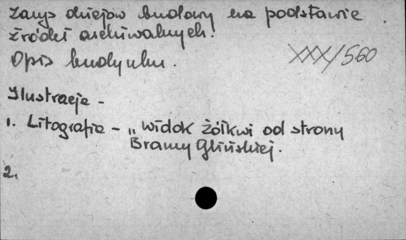 Zarys dziejów budowy na podstawie
źródeł archiwalnych.
Opis budynku.
XXX/560
Ilustracje -
1. Litografia - „widok Żółkwi od strony
Bramy Glińskiej.
2.